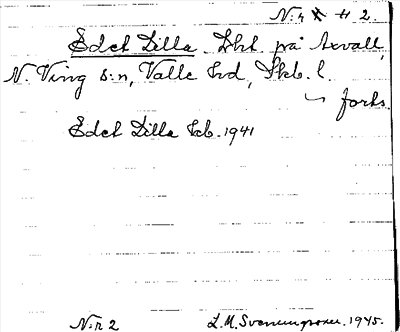 N:r 2.
Edet Lilla. Lht. på Axvall,
N. Ving s:n, Valle hd, Skb. l.
forts.
Edet Lilla Kb. 1941
N:r 2
L. M. Svenungsson. 1945.